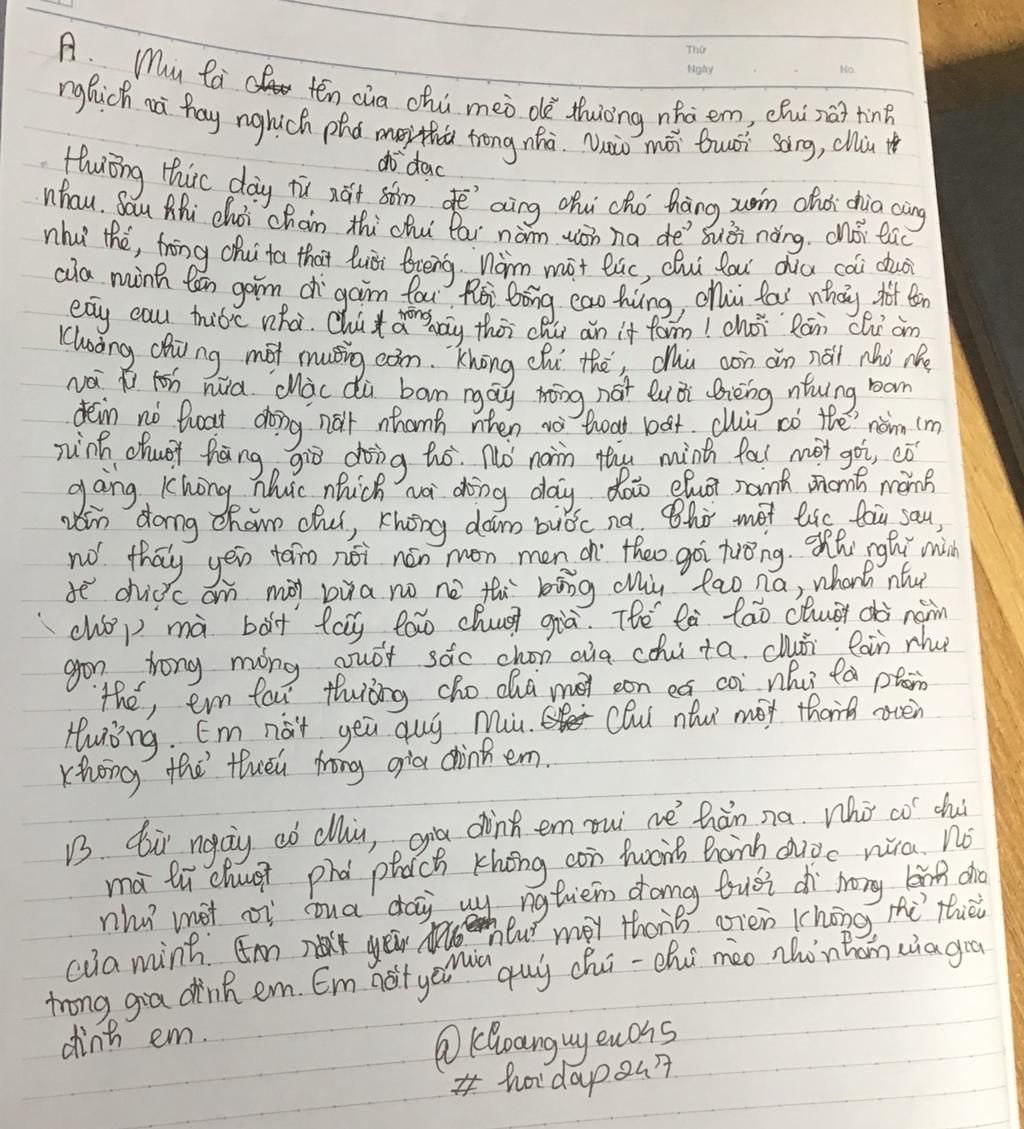 Thứ
Ngày . . No.
A. Miu là tên của chú mèo dễ thương nhà em, chú rất tinh
nghịch và hay nghịch phá đồ đạc trong nhà. Vào mỗi buổi sáng, Miu
thường thức dậy từ rất sớm để cùng chú chó hàng xóm chơi đùa cùng
nhau. Sau khi chơi chán thì chú lại nằm ườn ra để sưởi nắng. Mỗi lúc
như thế, trông chú ta thật lười biếng. Nằm một lúc, chú lại đưa cái đuôi
của mình lên gặm đi gặm lại. Rồi bỗng cao hứng, Miu lại nhảy tót lên
cây cau trước nhà. Chú ta trông vậy thôi chứ ăn ít lắm! Mỗi lần chỉ ăn
khoảng chừng một muỗng cơm. Không chỉ thế, Miu còn ăn rất nhỏ nhẹ
và từ tốn nữa. Mặc dù ban ngày trông rất lười biếng nhưng ban
đêm nó hoạt động rất nhanh nhẹn và hoạt bát. Miu có thể nằm im
rình chuột hàng giờ đồng hồ. Nó nằm thu mình lại một gói, cố
gắng không nhúc nhích và động đậy. Lão chuột ranh mãnh
vẫn đang chăm chú, không dám bước ra. Chờ một lúc lâu sau,
nó thấy yên tâm rồi nên mon men đi theo gói tường. Khi nghĩ mình
sẽ được ăn một bữa no nê thì bỗng Miu lao ra, nhanh như
chớp mà bắt lấy lão chuột già. Thế là lão chuột đã nằm
gọn trong móng vuốt sắc nhọn của chú ta. Mỗi lần như
thế, em lại thưởng cho chú một con cá coi như là phần
thưởng. Em rất yêu quý Miu. Chú như một thành viên
không thể thiếu trong gia đình em.
B. Từ ngày có Miu, gia đình em vui vẻ hẳn ra. Nhờ có chú
mà lũ chuột phá phách không còn hoành hành được nữa. Nó
như một vị vua đầy uy nghiêm đang bước đi trong lãnh địa
của mình. Em rất yêu như một thành viên không thể thiếu
trong gia đình em. Em rất yêu Miu quý chú - chú mèo nhỏ nhắn của gia
đình em.
@khoanguyen045
# hoidap247